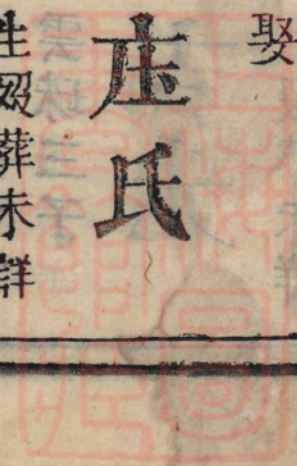 娶
庄氏
生殁葬未詳